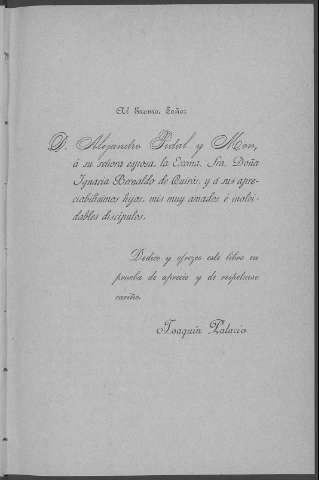 Al Excmo. Señor
D. Alejandro Pidal y Mon,
á su señora esposa, la Excma. Sra. Doña
Ignacia Bernaldo de Quirós, y á sus apre-
ciabilísimos hijos, mis muy amados é inolvi-
dables discípulos,
Dedico y ofrezco este libro en
prueba de aprecio y de respetuoso
cariño.
Joaquín Palacio